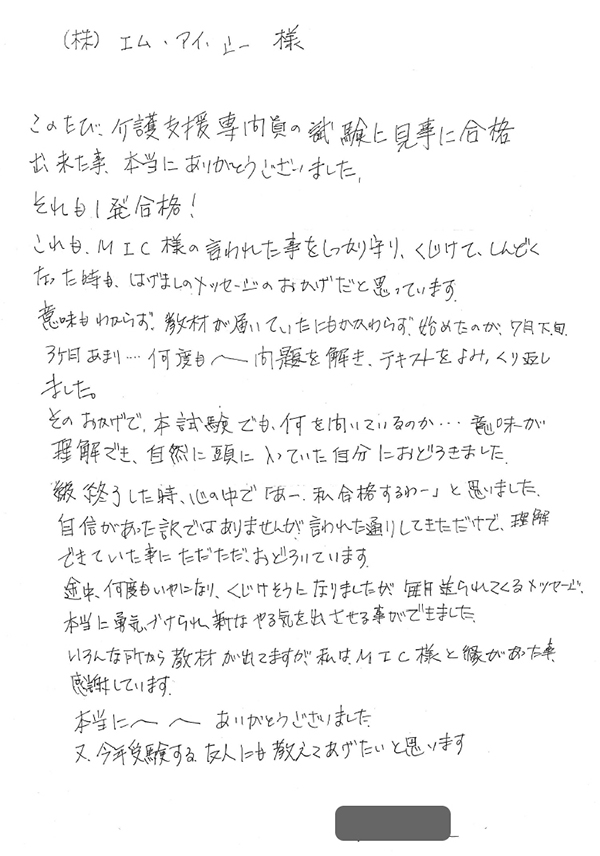 (株) エム・アイ・シー 様
このたび、介護支援専門員の試験に見事に合格
出来た事、本当にありがとうございました。
それも1発合格!
これも、MIC様の言われた事をしっかり守り、くじけて、しんどく
なった時も、はげましのメッセージのおかげだと思っています。
意味もわからず、教材が届いていたにもかかわらず、始めたのが、7月下旬、
3ヶ月あまり…何度も〜問題を解き、テキストをよみ、くり返し
ました。
そのおかげで、本試験でも、何を問いているのか…意味が
理解でき、自然に頭に入っていた自分におどろきました。
終了した時、心の中で「あー、私合格するわー」と思いました。
自信があった訳ではありませんが、言われた通りしてきただけで、理解
できていた事にただただ、おどろいています。
途中、何度もいやになり、くじけそうになりましたが 毎日送られてくるメッセージ、
本当に勇気づけられ、新たなやる気を出させる事ができました。
いろんな所から教材が出てますが、私は、MIC様と縁があった事、
感謝しています。
本当に〜〜ありがとうございました。
又、今年受験する、友人にも教えてあげたいと思います